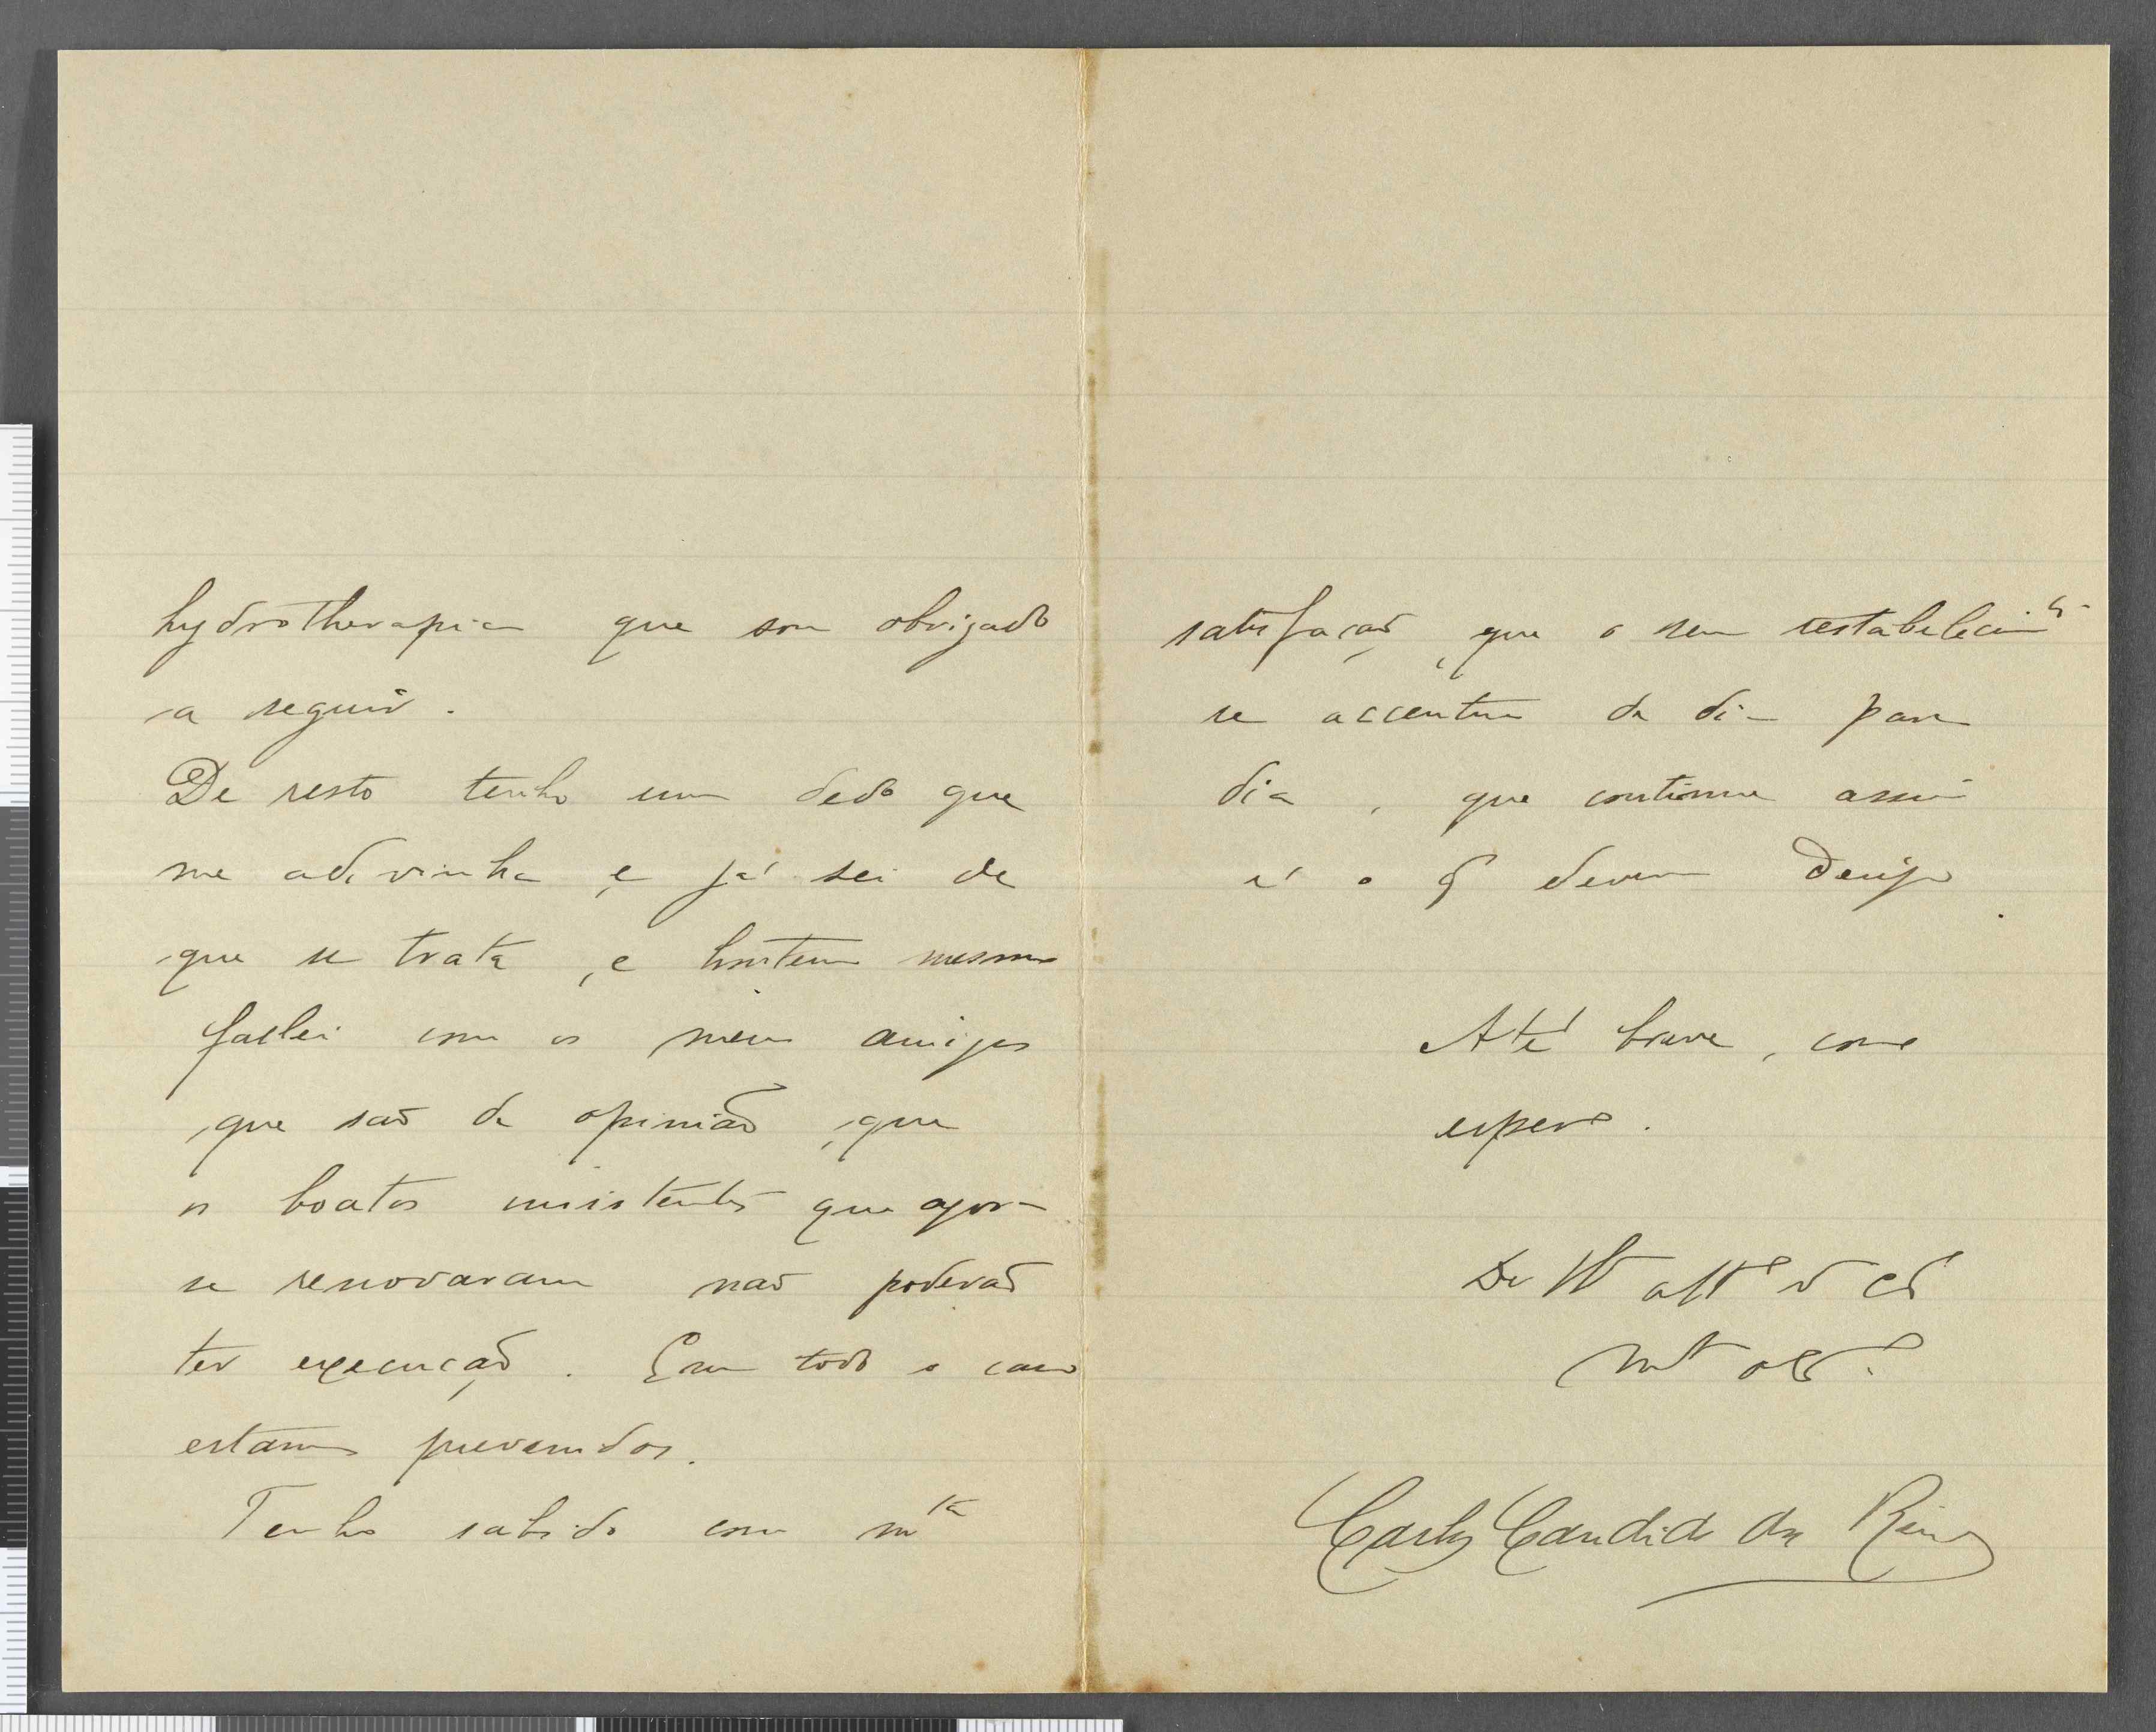 hydrotherapia que sou obrigado
a seguir.
De resto tenho um dedo que
me adivinha, e já sei de
que se trata, e hontem mesmo
fallei com os meus amigos
que são de opinião, que
os boatos insistentes que agora
se renovaram não poderão
ter execução. Em todo o caso
estamos prevenidos.
Tenho sabido com m^ta
satisfação, que o seu restabelecim^to
se accentua de dia para
dia, que continue assim
é o q devem desejo.
Até breve, como
espero.
De
Carlos Candido dos Reis